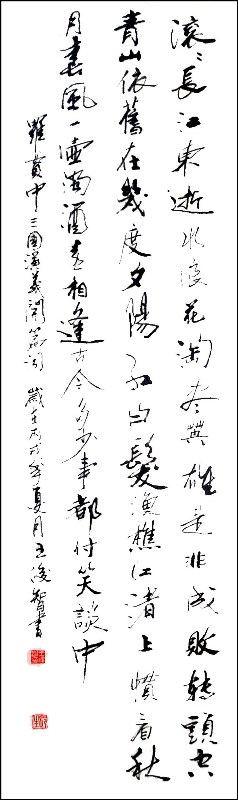 滚〻長江東逝水浪花淘尽英雄是非成敗轉頭空
青山依舊在幾度夕陽紅白髮漁樵江渚上慣看秋
月春風一壺濁酒喜相逢古今多少事都付笑談中
羅貫中三國演義開篇詞 歲在丙戌年夏月王俊智書